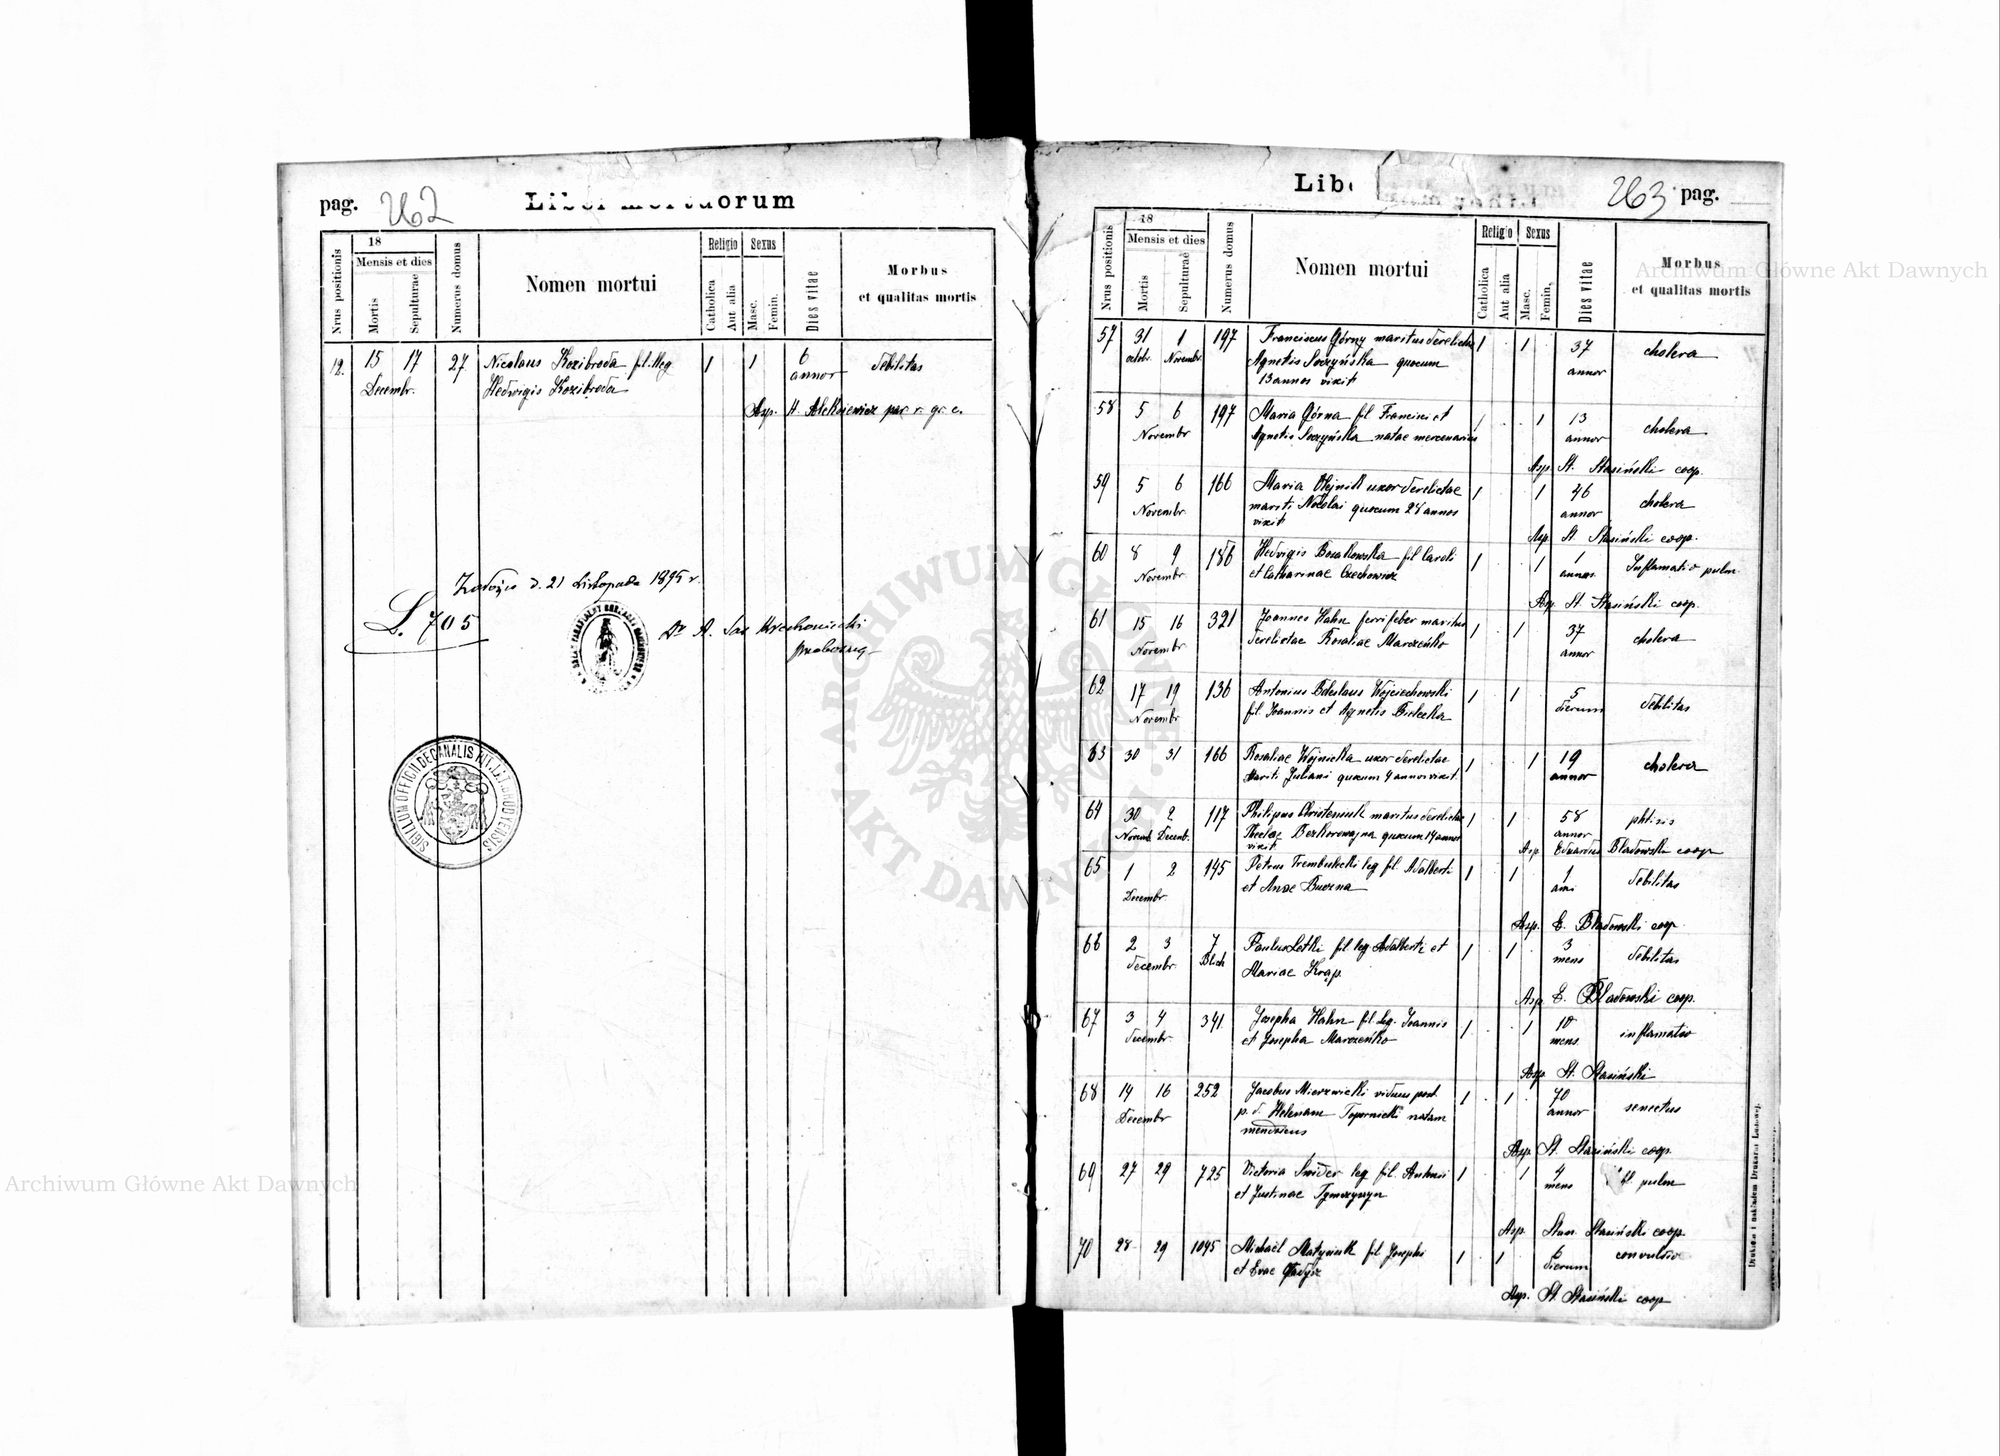 pag. 262 Liber mortuorum
Nrus positionis
18
Mensis et dies
Mortis
Sepulturae
Numerus domus
Nomen mortui
Religio
Catholica
Aut alia
Sexus
Masc.
Femin.
Dies vitae
Morbus
et qualitas mortis
12. 15 17 27 Nicolaus Kozibroda fil. illeg 1 1 6 debilitas
Decembr. Hedvigis Kozibroda annor
Asp. H. Aleksiewicz par. r. gr. c.
d. 21 Listopada 1895 r.
L. 705
A. Sas
proboszcz
SIGILLUM OFFICII DECANALIS RIT. LAT. BRODYENSIS
Lib 263 pag.
Nrus positionis
18
Mensis et dies
Mortis
Sepulturae
Numerus domus
Nomen mortui
Religio
Catholica
Aut alia
Sexus
Masc.
Femin.
Dies vitae
Morbus
et qualitas mortis
57 31 1 197 Franciscus Górny maritus derelictae 1 1 37 cholera
octobr. Novembr. Agnetis Soczyńska quocum annor
13 annos vixit
58 5 6 197 Maria Górna fil Francisci et 1 1 13 cholera
Novembr Agnetis Soczyńska natae mercenarius annor
Asp. St. Stasiński coop.
59 5 6 166 Maria Olejnik uxor derelictae 1 1 46 cholera
Novembr mariti Nicolai quocum 24 annos annor
vixit
Asp. St Stasiński coop.
60 8 9 186 Hedvigis Bosakowska fil Caroli 1 1 1 Inflamatio pulm
Novembr et Catharinae Czechowicz annus
Asp. St. Stasiński coop.
61 15 16 321 Joannes Hahn ferrifeber maritus 1 1 37 cholera
Novembr derelictae Rosaliae Marczeńko annor
62 17 19 136 Antonius Boleslaus Wojciechowski 1 1 5 debilitas
Novembr fil Joannis et Agnetis Bielecka dierum
63 30 31 166 Rosaliae Wojnicka uxor derelictae 1 1 19 cholera
Mariti Juliani quocum 4 annos vixit annor
64 30 2 117 Philipus maritus derelictae 1 1 58 phtisis
Novemb Decemb. Theclae quocum 14 annos annor
vixit Asp. Eduardus Bladowski coop
65 1 2 145 Petrus Trembulecki leg fil. Adalberti 1 1 1 debilitas
Decembr et Anae Buczna ani
Asp. E. Bladowski coop
66 2 3 7 Paulus Letki fil leg Adalberti et 1 1 3 debilitas
decembr. Blich Mariae Krąp. mens
Asp E. Bladowski coop.
67 3 4 341 Josepha Hahn fil leg. Joannis 1 1 10 inflamatio
decembr. et Josepha Marczeńko mens.
Asp St. Stasiński
68 14 16 252 Jacobus Mierzwicki viduus post 1 1 70 senectus
Decembr p. d. Helenam Topornicki natam annor
mendicus
Asp. St. Stasiński coop.
69 27 29 725 Victoria Świder leg fil. Antonii 1 1 4 pulm
et Justinae mens
Asp. Stan Stasiński coop.
70 28 29 1045 Michaël fil Josephi 1 1 6 convulsio
et Evae Gadysz dierum
Asp. St. Stasiński coop
Drukiem i nakładem Drukarni Ludowej.
ARCHIWUM GŁÓWNE AKT DAWNYCH
Archiwum Główne Akt Dawnych
Archiwum Główne Akt Dawnych